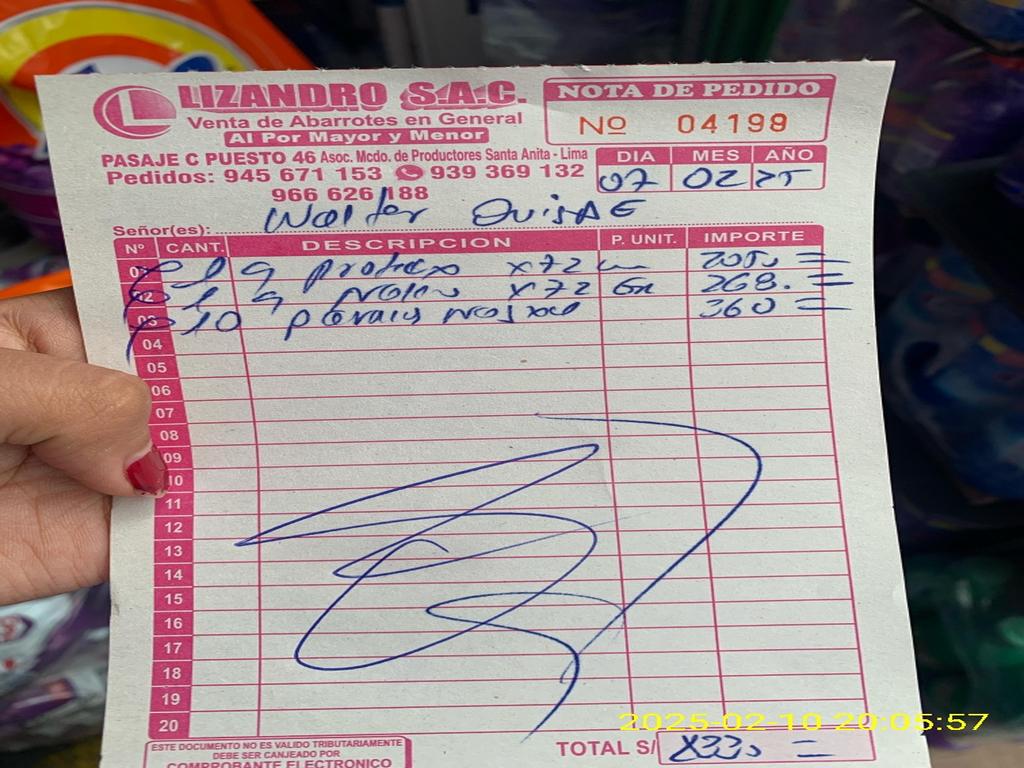 L LIZANDRO S.A.C.
Venta de Abarrotes en General
Al Por Mayor y Menor
PASAJE C PUESTO 46 Asoc. Mcdo. de Productores Santa Anita - Lima
Pedidos: 945 671 153 939 369 132
966 626 188
NOTA DE PEDIDO
Nº 04199
DIA MES AÑO
07 02 25
Señor(es): Walter
Nº CANT. DESCRIPCION P. UNIT. IMPORTE
01 x72
02 x72 268.=
03 10 360=
04
05
06
07
08
09
10
11
12
13
14
15
16
17
18
19
20
2025-02-10 20:05:57
ESTE DOCUMENTO NO ES VALIDO TRIBUTARIAMENTE
DEBE SER CANJEADO POR
COMPROBANTE ELECTRONICO
TOTAL S/